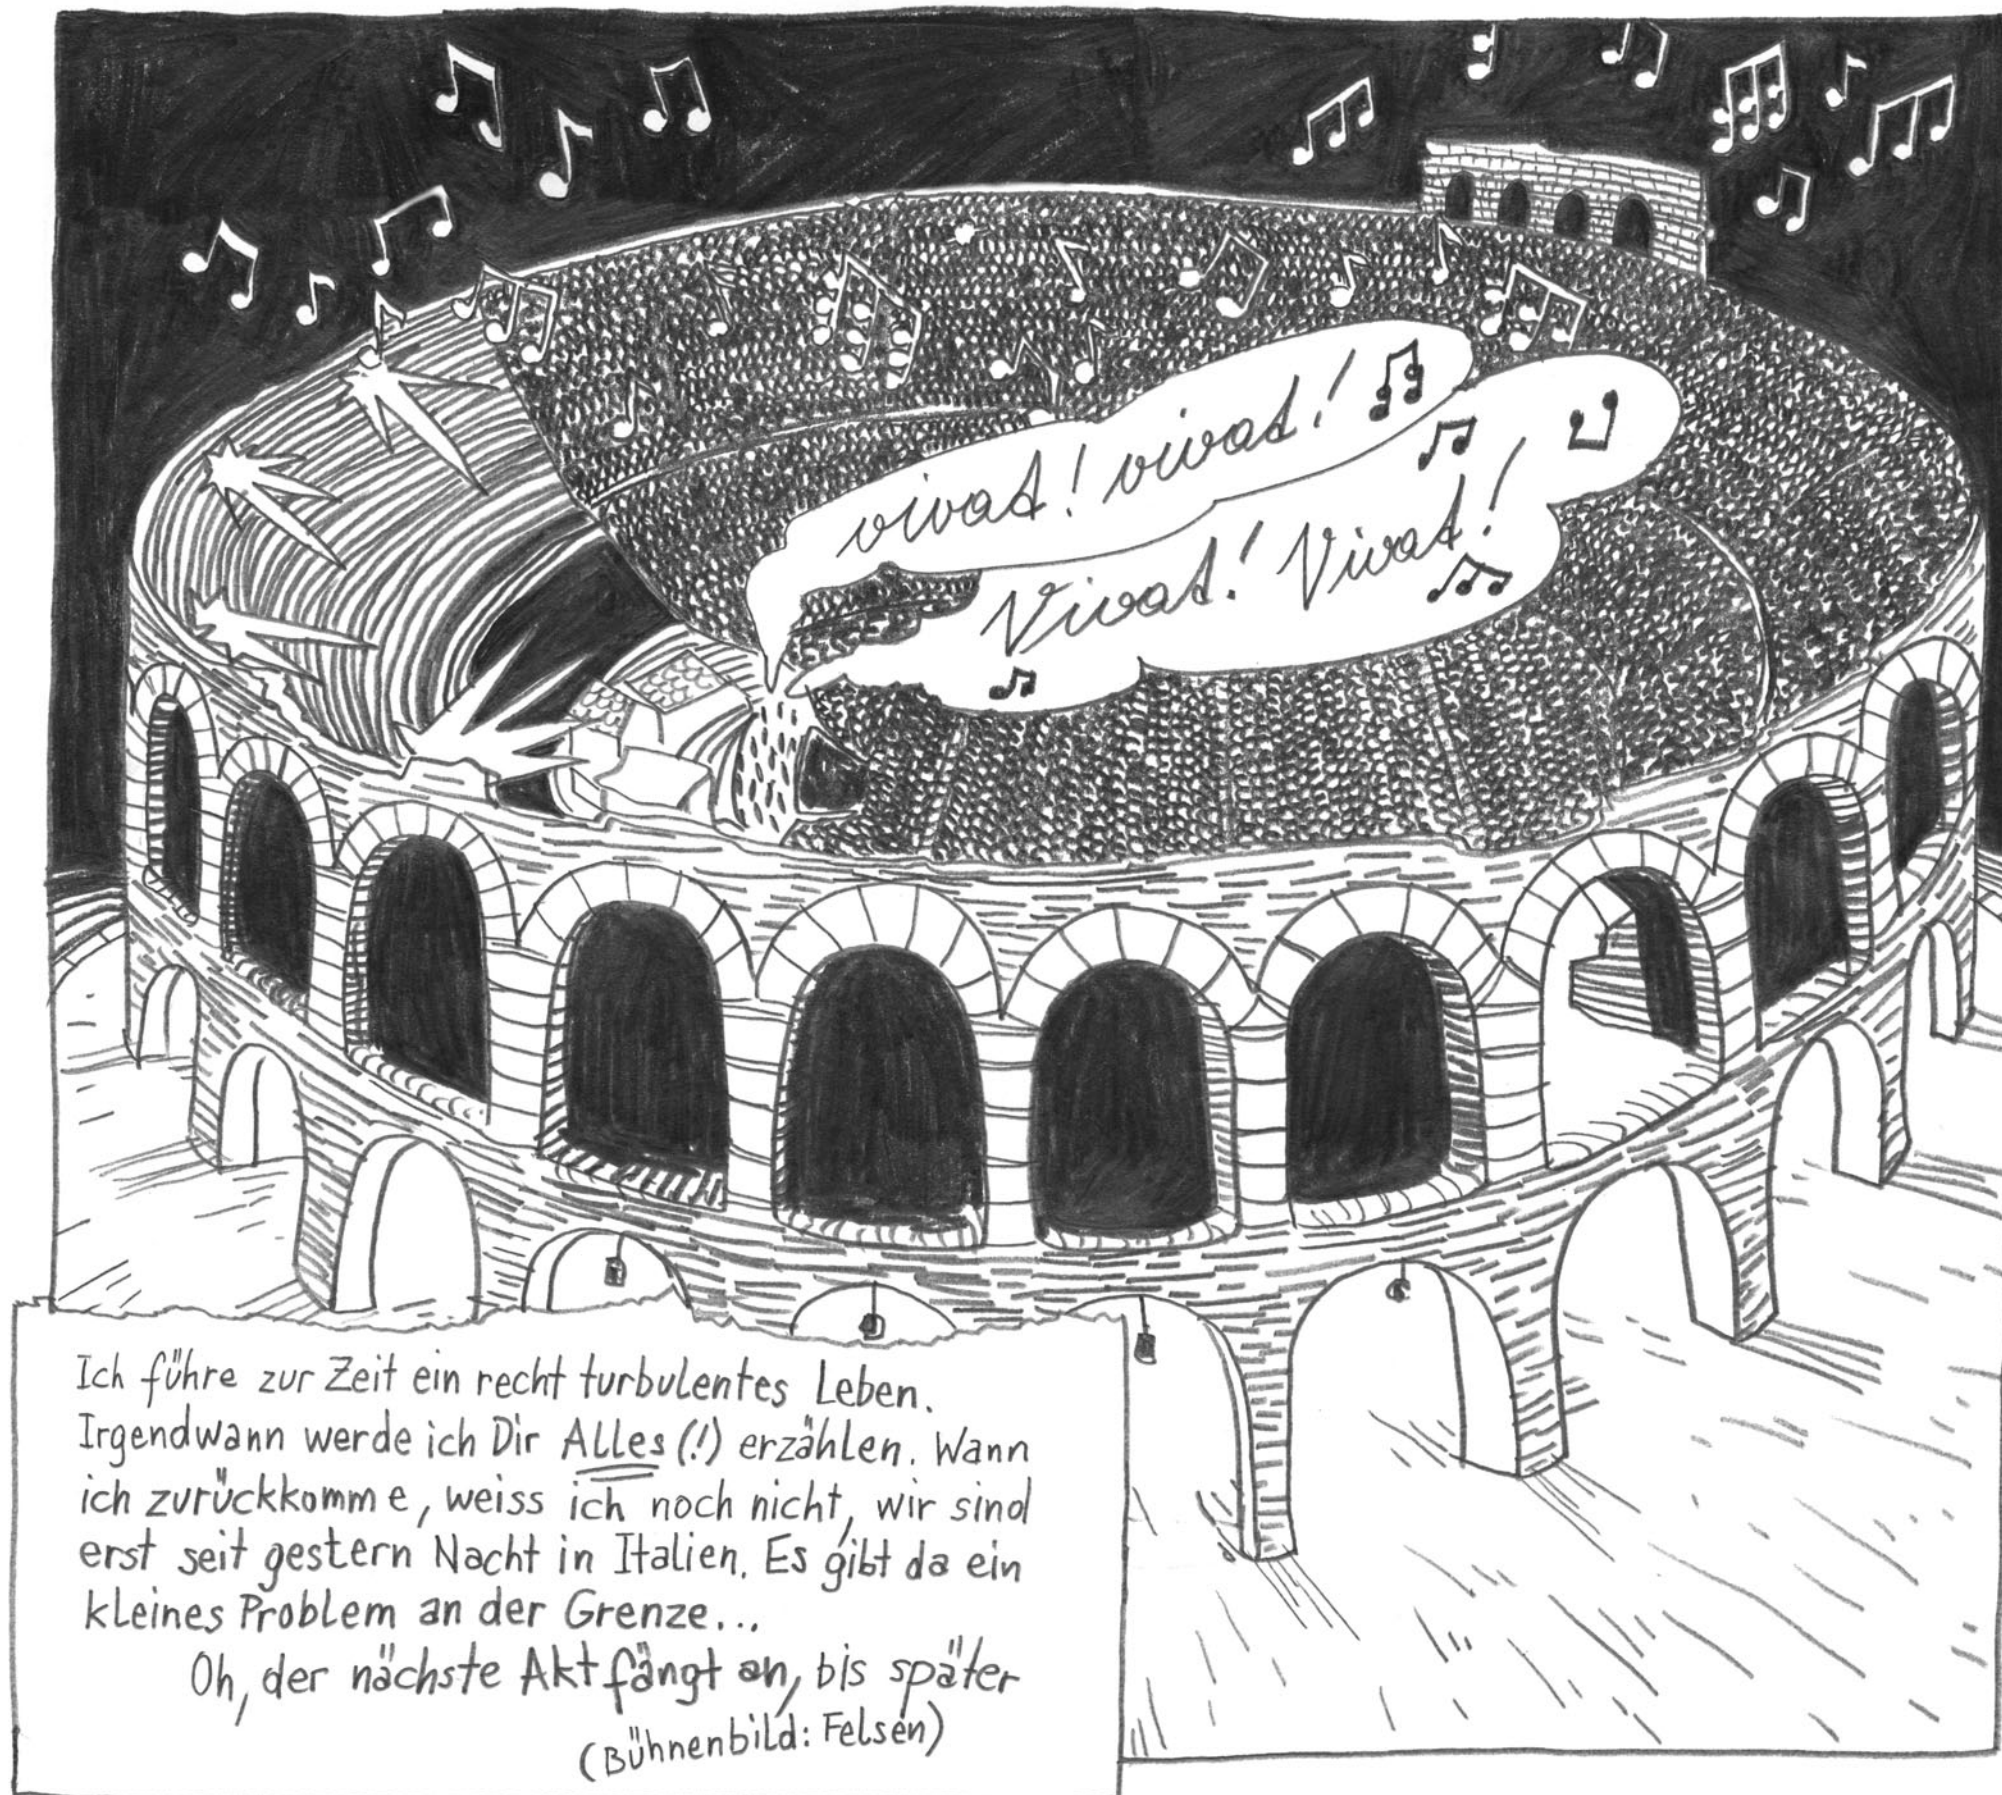 vivat! vivat!
Vivat! Vivat!
Ich führe zur Zeit ein recht turbulentes Leben.
Irgendwann werde ich Dir Alles (!) erzählen. Wann
ich zurückkomme, weiss ich noch nicht, wir sind
erst seit gestern Nacht in Italien. Es gibt da ein
kleines Problem an der Grenze...
Oh, der nächste Akt fängt an, bis später
(Bühnenbild: Felsen)